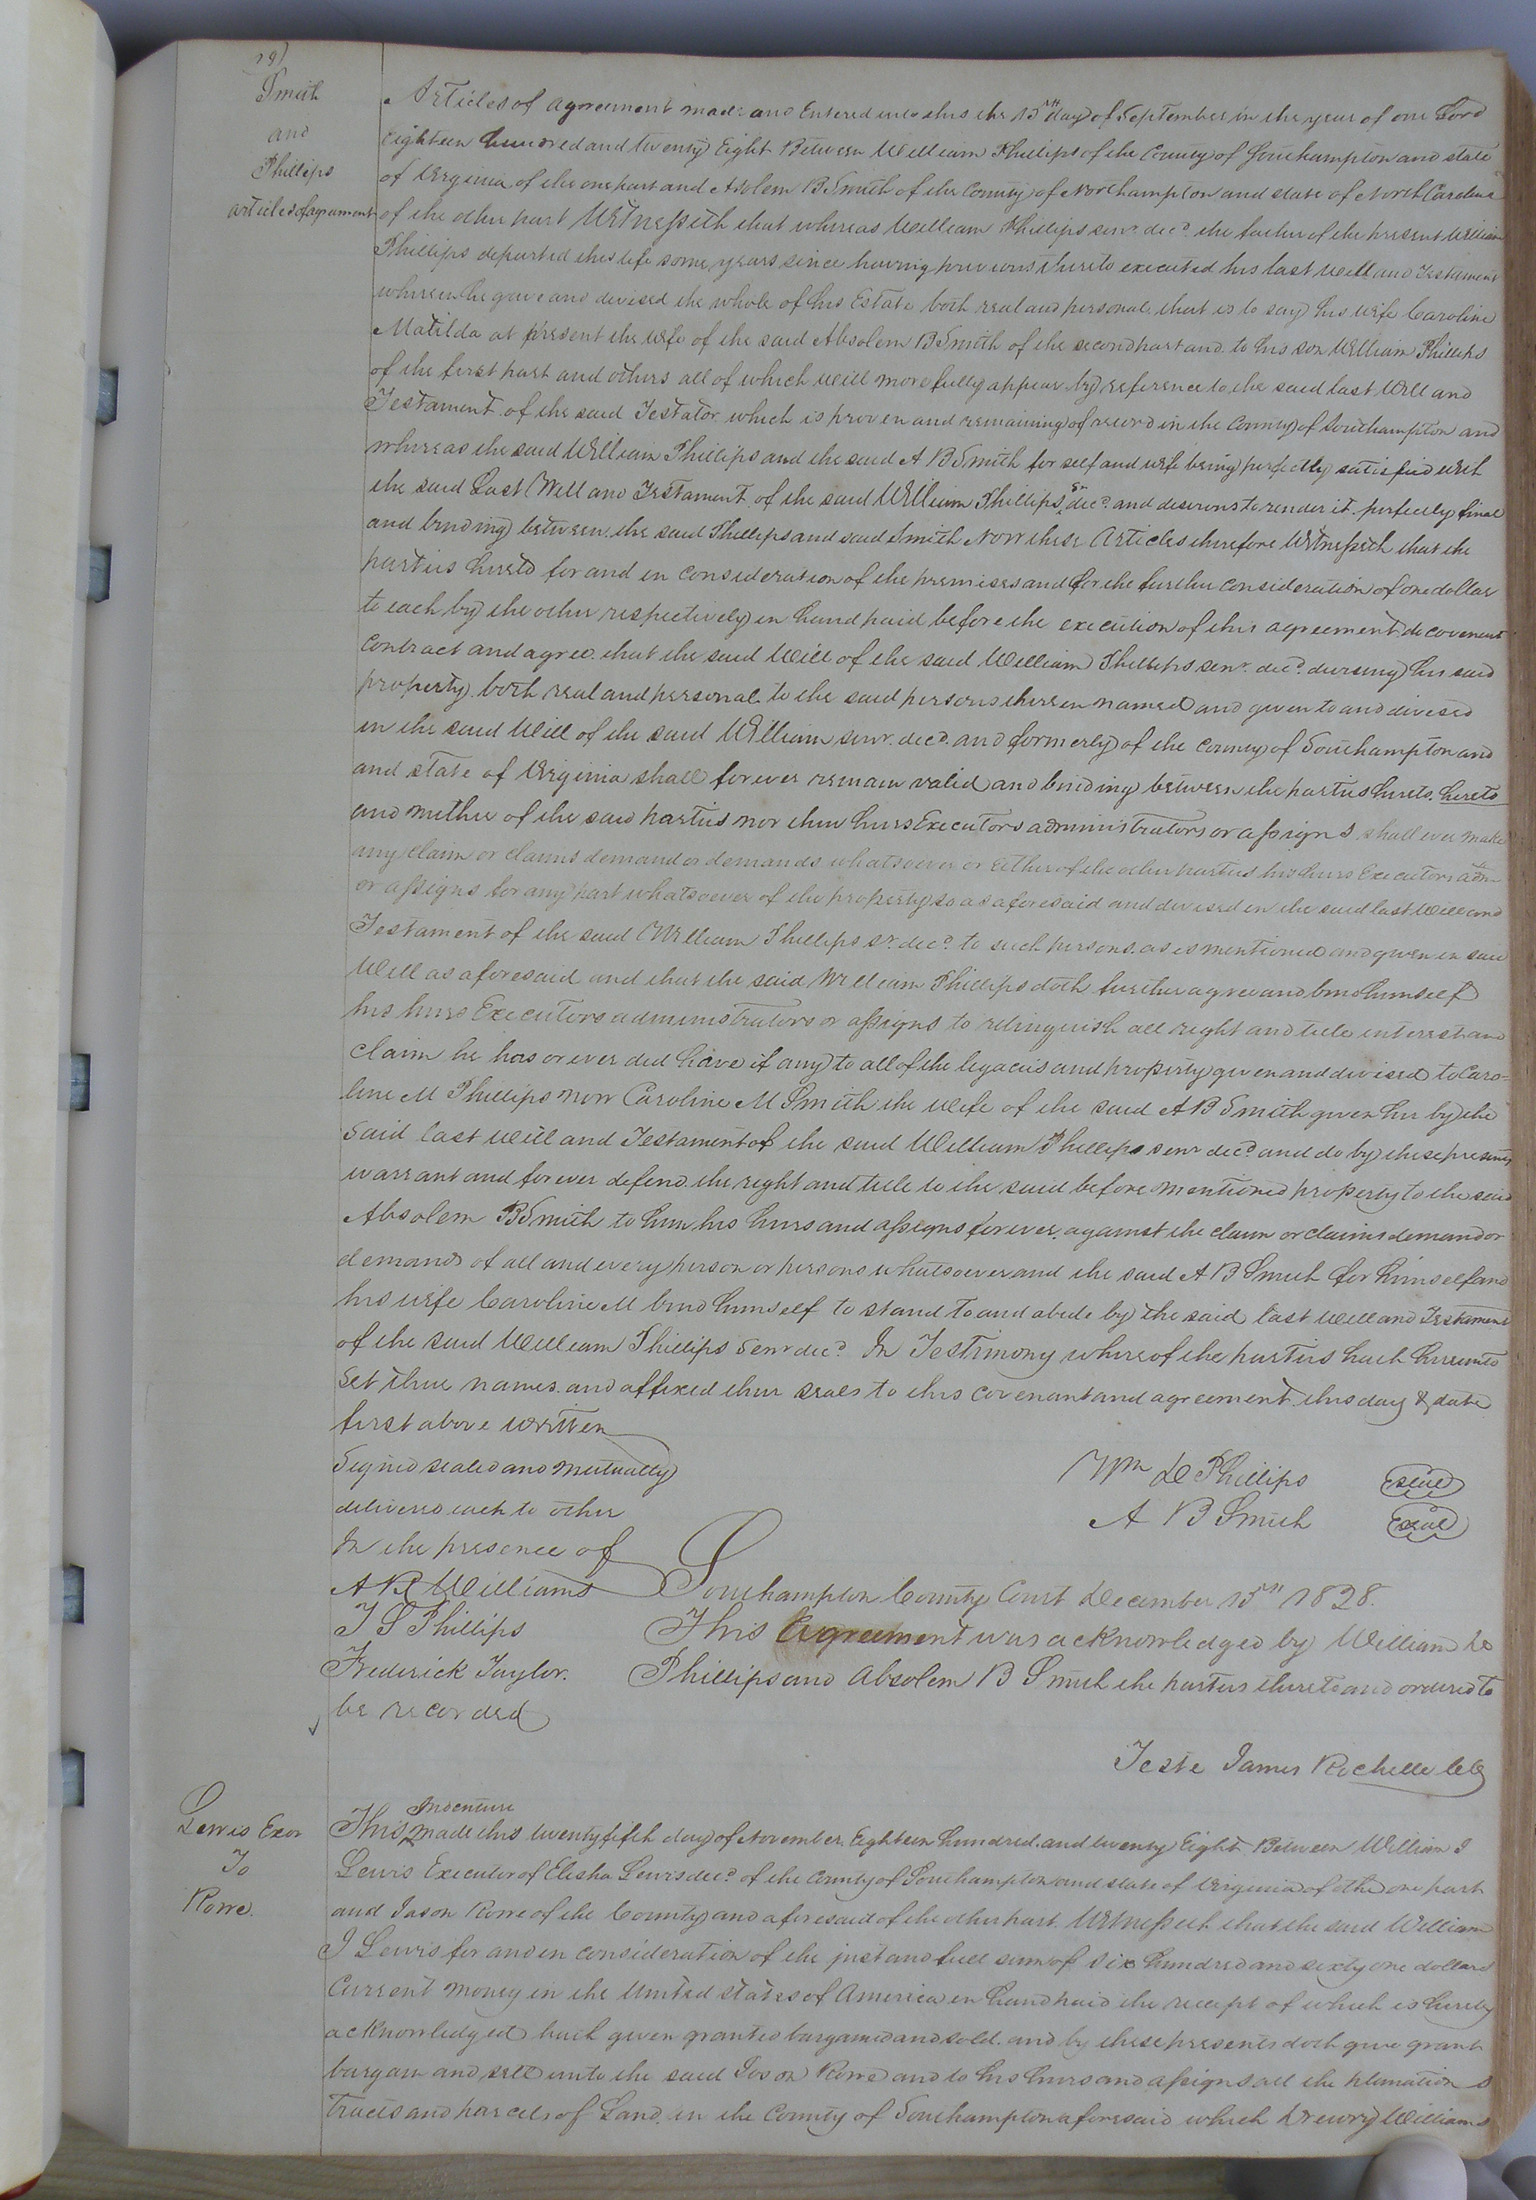 Smith
and
Phillips
articles of agreement
Articles of agreement made and Entered into this the 15th day of September in the year of our Lord
Eighteen hundred and twenty Eight Between William Phillips of the County of Southampton and state
of Virginia of the one part and Absolem B Smith of the County of Northampton and state of North Carolina
of the other part Witnesseth that whereas William Phillips senr. decd. the father of the present William
Phillips departed this life some years since having previous thereto executed his last will and Testament
wherein he gave and devised the whole of his Estate both real and personal that is to say his wife Caroline
Matilda at present the wife of the said Absolem B Smith of the second part and to his son William Phillips
of the first part and others all of which will more fully appear by reference to the said last Will and
Testament of the said Testator which is proven and remaining of record in the County of Southampton and
whereas the said William Phillips and the said A B Smith for self and wife being perfectly satisfied with
the said Last Will and Testament of the said William Phillips Sr decd. and desirous to render it perfectly final
and binding between the said Phillips and said Smith Now these Articles therefore Witnesseth that the
parties hereto for and in consideration of the premises and for the further consideration of one dollar
to each by the other respectively in hand paid before the execution of this agreement do covenant
contract and agree that the said Will of the said William Phillips senr. decd. devising his said
property both real and personal to the said persons therein named and given to and devised
in the said Will of the said William senr. decd. and formerly of the County of Southampton and
and state of Virginia shall forever remain valid and binding between the parties hereto hereto
and neither of the said parties nor their heirs Executors administrators or assigns shall ever make
any claim or claims demand or demands whatsoever or either of the other parties his heirs Executors adm
or assigns for any part whatsoever of the property so as aforesaid and devised in the said last Will and
Testament of the said William Phillips sr. decd. to such persons as is mentioned and given in said
Will as aforesaid and that the said William Phillips doth further agree and bind himself
his heirs Executors administrators or assigns to relinquish all right and title interest and
claim he has or ever did have if any to all of the legacies and property given and devised to Caro=
line M Phillips now Caroline M Smith the wife of the said A B Smith given her by the
said last will and Testament of the said William Phillips senr decd. and do by these presents
warrant and forever defend the right and title to the said before mentioned property to the said
Absolem B Smith to him his heirs and assigns forever against the claim or claims demand or
demands of all and every person or persons whatsoever and the said A B Smith for himself and
his wife Caroline M bind himself to stand to and abide by the said last will and Testament
of the said William Phillips Senr decd. In Testimony whereof the parties hath hereunto
set thire names and affixed their seals to this covenant and agreement this day & date
first above written
Signed sealed and mutually
delivered each to other
In the presence of
A R Williams
J S Phillips
Frederick Taylor.
Wm D Phillips seal
A B Smith seal
Southampton County Court December 15th 1828.
This Agreement was acknowledged by William D
Phillips and Absolem B Smith the parties thereto and ordered to
be recorded
Teste James Rochelle Clk
Lewis Exor
To
Rowe.
This Indenture made this twenty fifth day of November Eighteen hundred and twenty Eight Between William J
Lewis Executor of Elisha Lewis decd. of the County of Southampton and state of Virginia of the one part
and Jason Rowe of the County and aforesaid of the other part Witnesseth that the said William
J Lewis for and in consideration of the just and full sum of six hundred and sixty one dollars
Current money in the United States of America in hand paid the receipt of which is hereby
acknowledged hath given granted bargained and sold and by these presents doth give grant
bargain and sell unto the said Jason Rowe and to his heirs and assigns all the plantation s
tracts and parcels of Land in the County of Southampton aforesaid which Drewry Williams